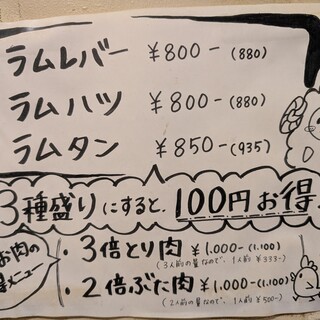 ラムレバー ¥800-(880)
ラムハツ ¥800-(880)
ラムタン ¥850-(935)
3種盛りにすると、100円お得
お肉の
メニュー
・3倍とり肉 ¥1,000-(1,100)
(3人前の量なので、1人前 ¥333-)
・2倍ぶた肉 ¥1,000-(1,100)
(2人前の量なので、1人前 ¥500-)